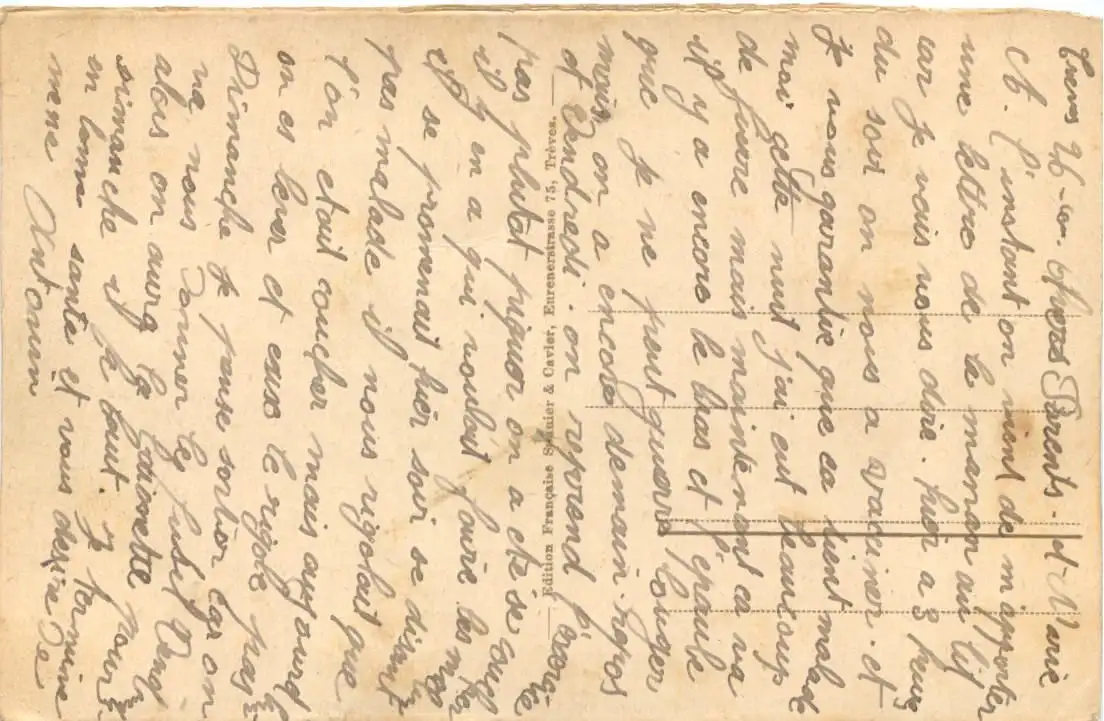 Treves 26- Chers Parents. et Marie
et. l'instant on vient de m'apporter
une lettre de la maman au lit
car je vais vous dire. hier a 3 heures
du soir on nous a vacciner. et
Je vous garantie que ca vient malade
moi cette nuit j'ai eut beaucoup
de fievre mais maintenant ca va
il y a encore le bras et l'épaule
que je ne peut guerre bouger
mais on a encore demain repos
et Vendredi. on reprend l'exercice
pas plutot piquer on a eté se coucher
il y en a qui voulait faire les
et se promenait hier soir se disant
pas malade il nous rigolait que
l'on etait coucher mais aujourd
on es lever et eux le rigole pas
Dimanche je pense sortir car on
ne nous Donner le fusil
alors on aura la fourchette pour
dimanche il la faut. Je termine
en bonne sante et vous desire De
mene Antonin
— Edition Française Saunier & Cavier, Eurenerstrasse 75, Trèves. —